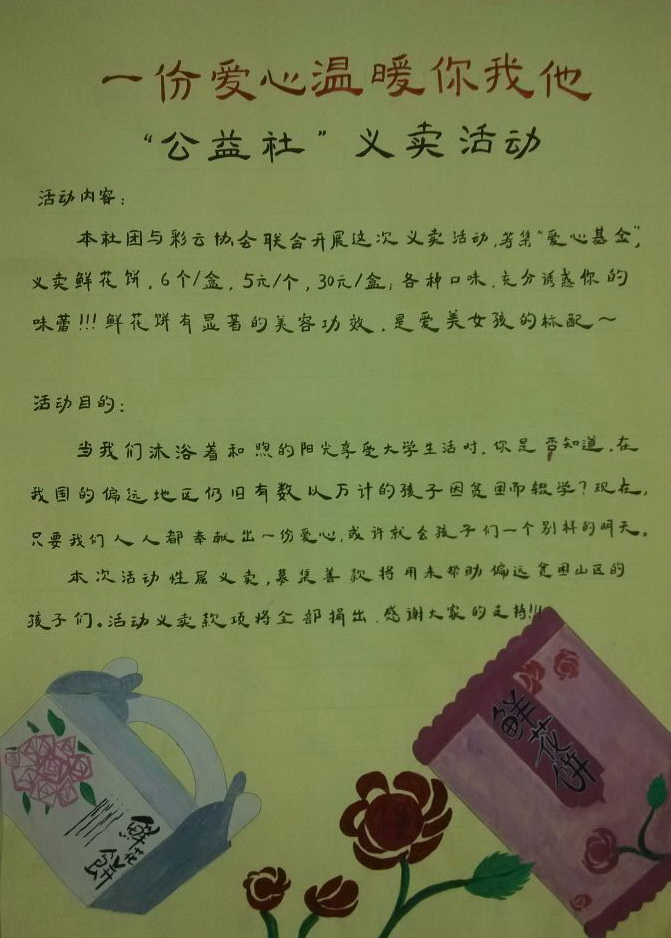 一份爱心温暖你我他
“公益社”义卖活动
活动内容：
本社团与彩云协会联合开展这次义卖活动，筹集“爱心基金”，
义卖鲜花饼，6个/盒，5元/个，30元/盒；各种口味，充分诱惑你的
味蕾!!!鲜花饼有显著的美容功效，是爱美女孩的标配～
活动目的：
当我们沐浴着和煦的阳光享受大学生活时，你是否知道，在
我国的偏远地区仍旧有数以万计的孩子因贫困而辍学？现在，
只要我们人人都奉献出一份爱心，或许就会孩子们一个别样的明天。
本次活动性属义卖，募集善款将用来帮助偏远贫困山区的
孩子们。活动义卖款项将全部捐出，感谢大家的支持!!!
鲜花饼
鲜花餅